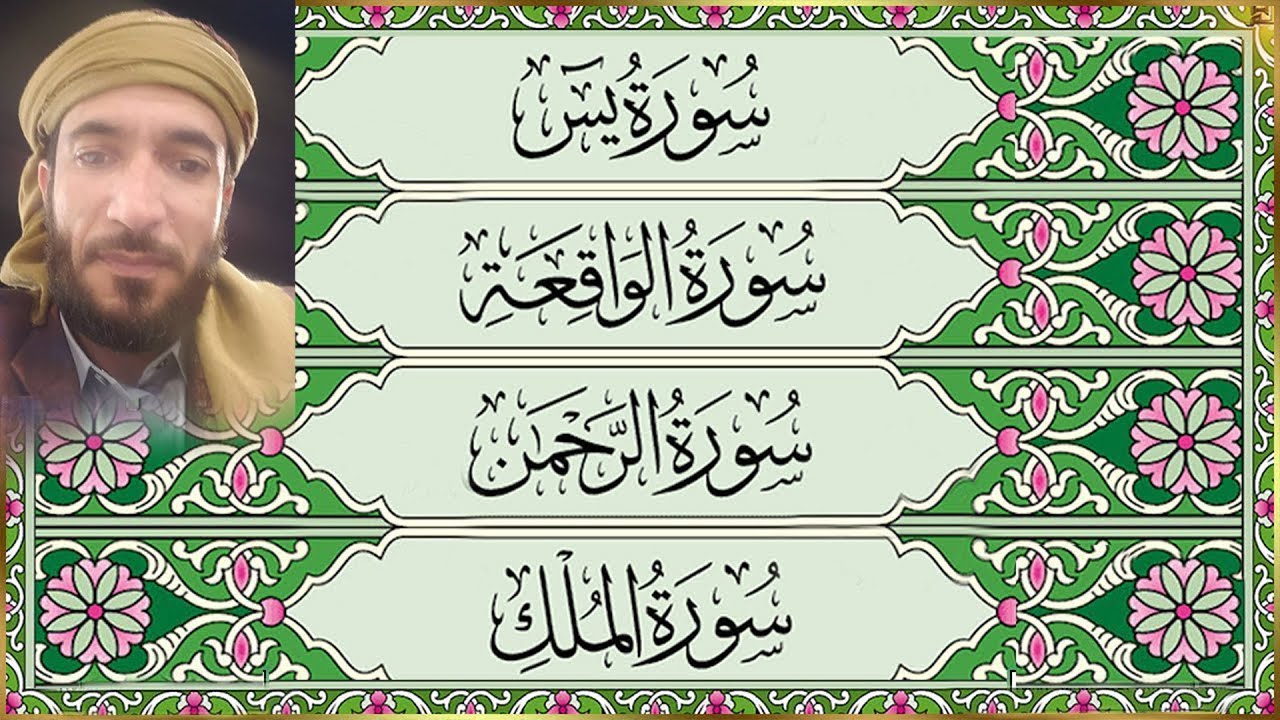 سُورَةُ يسٓ
سُورَةُ الوَاقِعَةِ
سُورَةُ الرَّحْمَٰن
سُورَةُ المُلْكِ